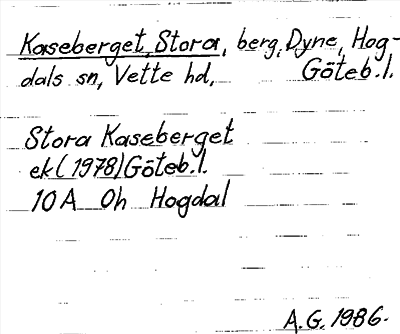 Kaseberget, Stora, berg, Dyne, Hog-
dals sn, Vette hd, Göteb. l.
Stora Kaseberget
ek (1978) Göteb. l.
10A Oh Hogdal
A.G. 1986.